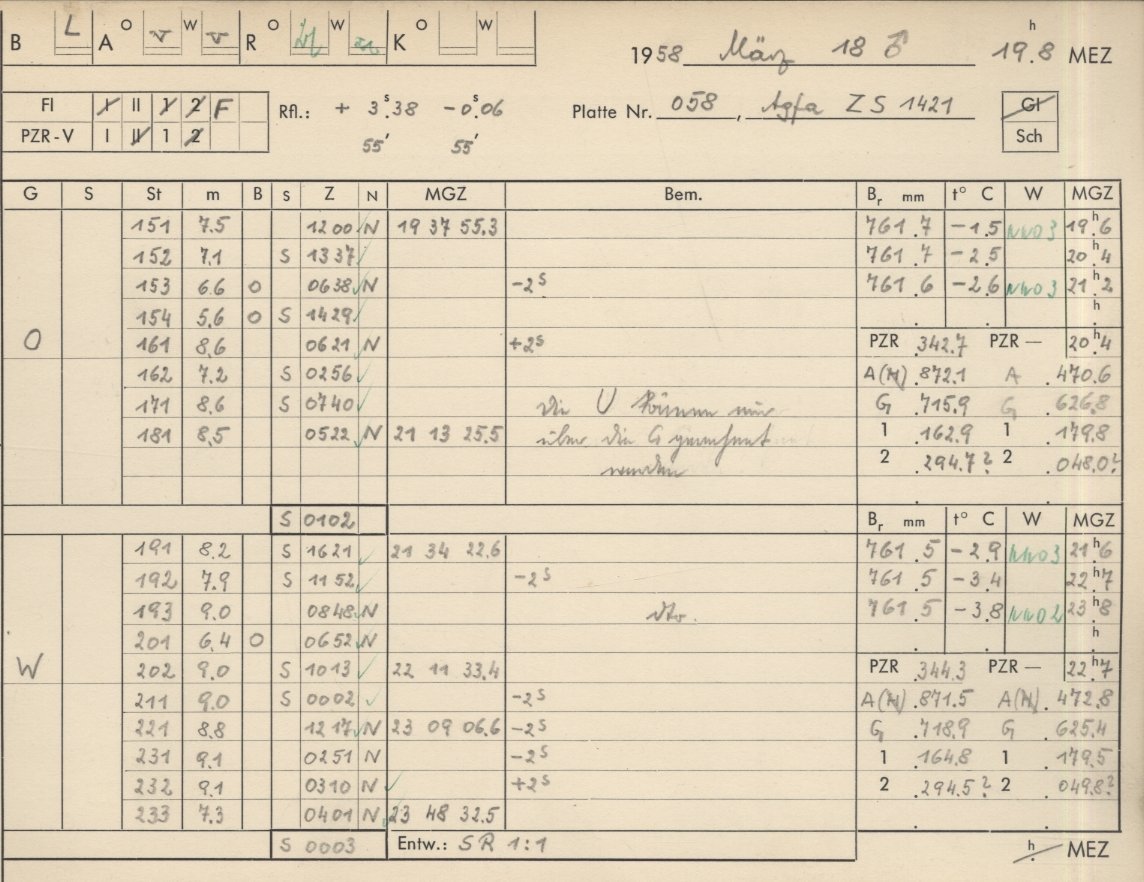 B L A O W R O W K O W
1958 März 18 ♂ 19.8 h MEZ
FI I II 1 2 F
PZR-V I II 1 2
Rfl.: + 3.ˢ38 -0.ˢ06
55' 55'
Platte Nr. 058, Agfa ZS 1421
Gl
Sch
G S St m B S Z N MGZ Bem. Bᵣ mm t° C W MGZ
151 7.5 1200 N 19 37 55.3 761.7 -1.5 NNO3 19.ʰ6
152 7.1 S 1337 761.7 -2.5 20.ʰ4
153 6.6 O 0638 N -2ˢ 761.6 -2.6 NNO3 21.ʰ2
154 5.6 O S 1429 h
O 161 8.6 0621 N +2ˢ PZR .342.7 PZR — 20.ʰ4
162 7.2 S 0256 A(N) .872.1 A .470.6
171 8.6 S 0740 Die U können nur G .715.9 G .626.8
181 8.5 0522 N 21 13 25.5 über die G gerechnet 1 .162.9 1 .179.8
werden 2 .294.7? 2 .048.0?
S 0102 Bᵣ mm t° C W MGZ
191 8.2 S 1621 21 34 22.6 761.5 -2.9 NNO3 21.ʰ6
192 7.9 S 1152 -2ˢ 761.5 -3.4 22.ʰ7
193 9.0 0848 N dto. 761.5 -3.8 NNO2 23.ʰ8
201 6.4 O 0652 N h
W 202 9.0 S 1013 22 11 33.4 PZR .344.3 PZR — 22.ʰ7
211 9.0 S 0002 -2ˢ A(N) .871.5 A(N) .472.8
221 8.8 1217 N 23 09 06.6 -2ˢ G .718.9 G .625.4
231 9.1 0251 N -2ˢ 1 .164.8 1 .179.5
232 9.1 0310 N +2ˢ 2 .294.5? 2 .049.8?
233 7.3 0401 N 23 48 32.5
S 0003 Entw.: SR 1:1 h MEZ